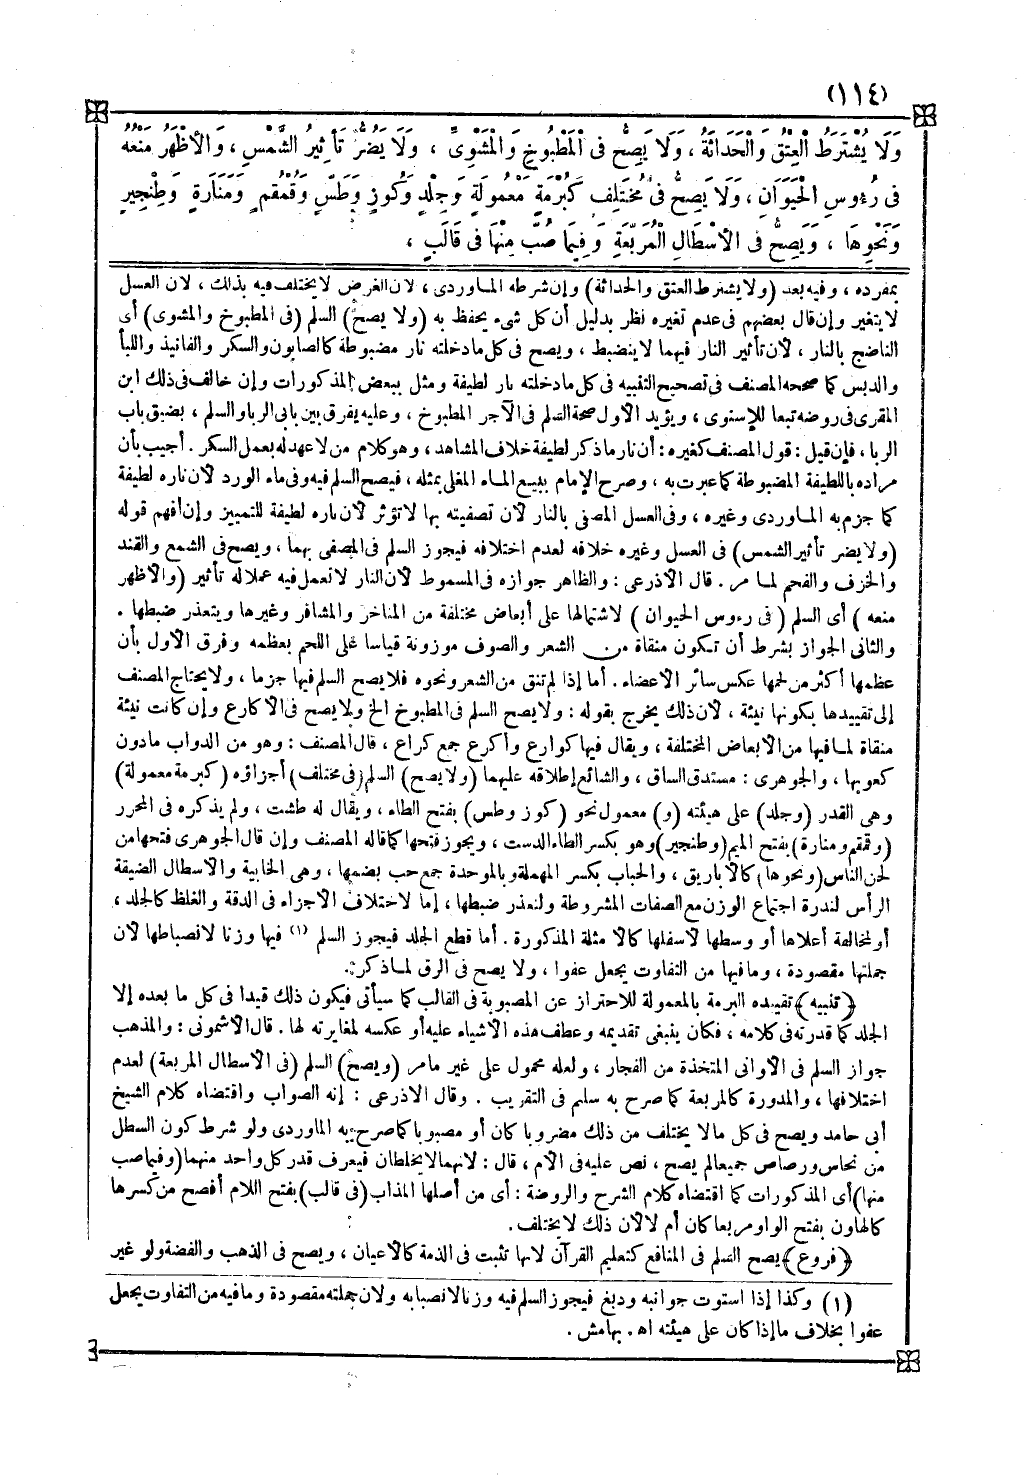 (١١٤)
وَلَا يُشْتَرَطُ الْعِتْقُ وَالْحَدَاثَةُ ، وَلَا يَصِحُّ فِى الْمَطْبُوخِ وَالْمَشْوِىِّ ، وَلَا يَضُرُّ تَأْثِيرُ الشَّمْسِ ، وَالْأَظْهَرُ مَنْعُهُ
فِى رُءُوسِ الْحَيَوَانِ ، وَلَا يَصِحُّ فِى مُخْتَلِفٍ كَبُرْمَةٍ مَعْمُولَةٍ وَجِلْدٍ وَكُوزٍ وَطَسٍّ وَقُمْقُمٍ وَمَنَارَةٍ وَطِنْجِيرٍ
وَنَحْوِهَا ، وَيَصِحُّ فِى الْأَسْطَالِ الْمُرَبَّعَةِ وَفِيمَا صُبَّ مِنْهَا فِى قَالَبٍ ،
بمفرده ، وفيه بعد (ولا يشترط العتق والحداثة) وإن شرطه الماوردى ، لأن الغرض لا يختلف فيه بذلك ، لأن العسل
لا يتغير وإن قال بعضهم فى عدم تغيره نظر بدليل أن كل شىء يحفظ به (ولا يصح) السلم (فى المطبوخ والمشوى) أى
الناضج بالنار ، لأن تأثير النار فيهما لا ينضبط ، ويصح فى كل ما دخلته نار مضبوطة كالصابون والسكر والفانيذ واللبأ
والدبس كما صححه المصنف فى تصحيح التنبيه فى كل ما دخلته نار لطيفة ومثل ببعض المذكورات وإن خالف فى ذلك ابن
المقرى فى روضه تبعا للإسنوى ، ويؤيد الأول صحة السلم فى الآجر المطبوخ ، وعليه يفرق بين بابى الربا والسلم ، بضيق باب
الربا ، فإن قيل : قول المصنف كغيره : أن نار ما ذكر لطيفة خلاف المشاهد ، وهو كلام من لا عهد له بعمل السكر . أجيب بأن
مراده باللطيفة المضبوطة كما عبرت به ، وصرح الإمام ببيع الماء المغلى بمثله ، فيصح السلم فيه وفى ماء الورد لأن ناره لطيفة
كما جزم به الماوردى وغيره ، وفى العسل المصفى بالنار لأن تصفيته بها لا تؤثر لأن ناره لطيفة للتمييز وإن أفهم قوله
(ولا يضر تأثير الشمس) فى العسل وغيره خلافه لعدم اختلافه فيجوز السلم فى المصفى بهما ، ويصح فى الشمع والقند
والخزف والفحم لما مر . قال الأذرعى : والظاهر جوازه فى المسموط لأن النار لا تعمل فيه عملا له تأثير (والأظهر
منعه ) أى السلم ( فى رءوس الحيوان ) لاشتمالها على أبعاض مختلفة من المناخر والمشافر وغيرها ويتعذر ضبطها .
والثانى الجواز بشرط أن تكون منقاة من الشعر والصوف موزونة قياسا على اللحم بعظمه وفرق الأول بأن
عظمها أكثر من لحمها عكس سائر الأعضاء . أما إذا لم تنق من الشعر ونحوه فلا يصح السلم فيها جزما ، ولا يحتاج المصنف
إلى تقييدها بكونها نيئة ، لأن ذلك يخرج بقوله : ولا يصح السلم فى المطبوخ الخ ولا يصح فى الأكارع وإن كانت نيئة
منقاة لما فيها من الأبعاض المختلفة ، ويقال فيها كوارع وأكرع جمع كراع ، قال المصنف : وهو من الدواب مادون
كعوبها ، والجوهرى : مستدق الساق ، والشائع إطلاقه عليهما (ولا يصح) السلم (فى مختلف) أجزاؤه (كبرمة معمولة)
وهى القدر (وجلد) على هيئته (و) معمول نحو (كوز وطس) بفتح الطاء ، ويقال له طشت ، ولم يذكره فى المحرر
(وقمقم ومنارة) بفتح الميم (وطنجير) وهو بكسر الطاء الدست ، ويجوز فتحها كما قاله المصنف وإن قال الجوهرى فتحها من
لحن الناس (ونحوها) كالأباريق ، والحباب بكسر المهملة وبالموحدة جمع حب بضمها ، وهى الخابية والأسطال الضيقة
الرأس لندرة اجتماع الوزن مع الصفات المشروطة ولتعذر ضبطها ، إما لاختلاف الأجزاء فى الدقة والغلظ كالجلد ،
أو لمخالفة أعلاها أو وسطها لأسفلها كالأمثلة المذكورة . أما قطع الجلد فيجوز السلم (١) فيها وزنا لانضباطها لأن
جملتها مقصودة ، وما فيها من التفاوت يجعل عفوا ، ولا يصح فى الرق لما ذكر .
(تنبيه) تقييده البرمة بالمعمولة للاحتراز عن المصبوبة فى القالب كما سيأتى فيكون ذلك قيدا فى كل ما بعده إلا
الجلد كما قدرته فى كلامه ، فكان ينبغى تقديمه وعطف هذه الأشياء عليه أو عكسه لمغايرته لها . قال الأشمونى : والمذهب
جواز السلم فى الأوانى المتخذة من الفخار ، ولعله محمول على غير مامر (ويصح) السلم (فى الأسطال المربعة) لعدم
اختلافها ، والمدورة كالمربعة كما صرح به سليم فى التقريب . وقال الأذرعى : إنه الصواب واقتضاه كلام الشيخ
أبى حامد ويصح فى كل مالا يختلف من ذلك مضروبا كان أو مصبوبا كما صرح به الماوردى ولو شرط كون السطل
من نحاس ورصاص جميعا لم يصح ، نص عليه فى الأم ، قال : لأنهما لا يخلطان فيعرف قدر كل واحد منهما (وفيما صب
منها) أى المذكورات كما اقتضاه كلام الشرح والروضة : أى من أصلها المذاب (فى قالب) بفتح اللام أفصح من كسرها
كالهاون بفتح الواو مربعا كان أم لا لأن ذلك لا يختلف .
(فروع) يصح السلم فى المنافع كتعليم القرآن لأنها تثبت فى الذمة كالأعيان ، ويصح فى الذهب والفضة ولو غير
(١) وكذا إذا استوت جوانبه ودبغ فيجوز السلم فيه وزنا لانضباطه ولأن جملته مقصودة وما فيه من التفاوت يجعل
عفوا بخلاف ما إذا كان على هيئته اه . بهامش .